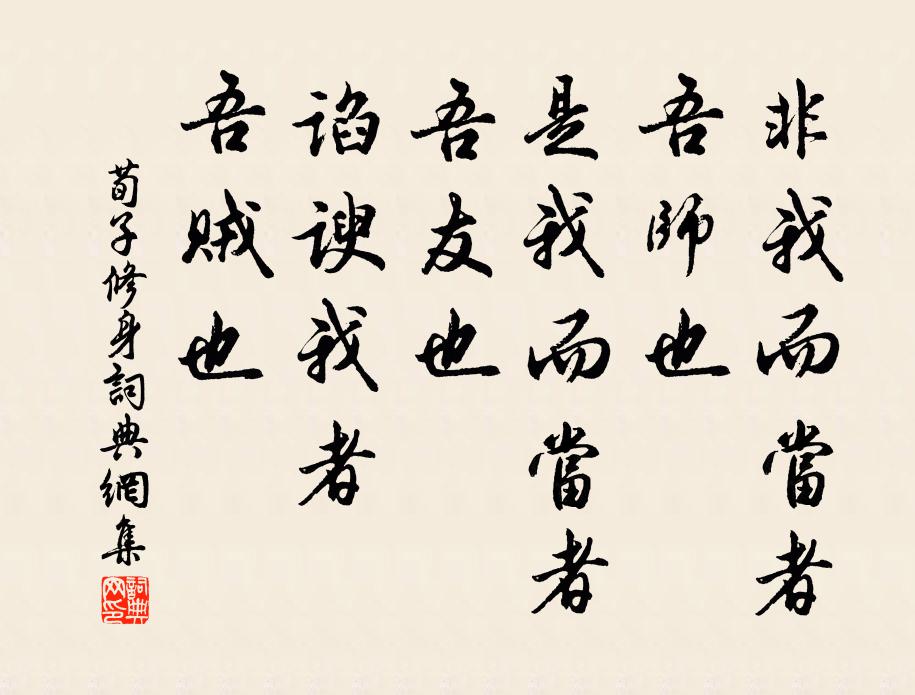 非我而當者
吾師也
是我而當者
吾友也
諂諛我者
吾賊也
荀子修身詞典網集
詞典網印